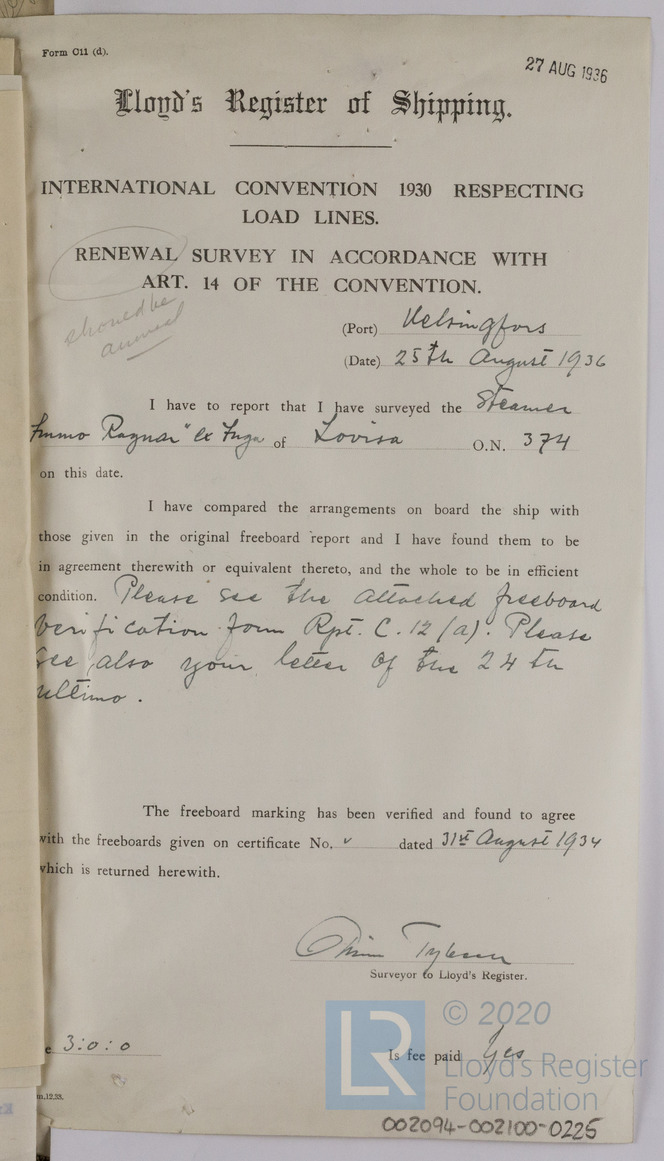 Form C11 (d).
27 AUG 1936
Lloyd's Register of Shipping.
INTERNATIONAL CONVENTION 1930 RESPECTING
LOAD LINES.
RENEWAL SURVEY IN ACCORDANCE WITH
ART. 14 OF THE CONVENTION.
should be
annual
(Port) Helsingfors
(Date) 25th August 1936
I have to report that I have surveyed the Steamer
Immo Ragnar" ex of Lovisa O.N. 374
on this date.
I have compared the arrangements on board the ship with
those given in the original freeboard report and I have found them to be
in agreement therewith or equivalent thereto, and the whole to be in efficient
condition. Please see the attached freeboard
verification form Rpt. C. 12 (a). Please
see also your letter of the 24th
ultimo.
The freeboard marking has been verified and found to agree
with the freeboards given on certificate No. dated 31st August 1934
which is returned herewith.
Surveyor to Lloyd's Register.
e 3:0:0
Is fee paid Yes
m.12.33.
LR
© 2020
Lloyd's Register
Foundation
002094-002100-0225